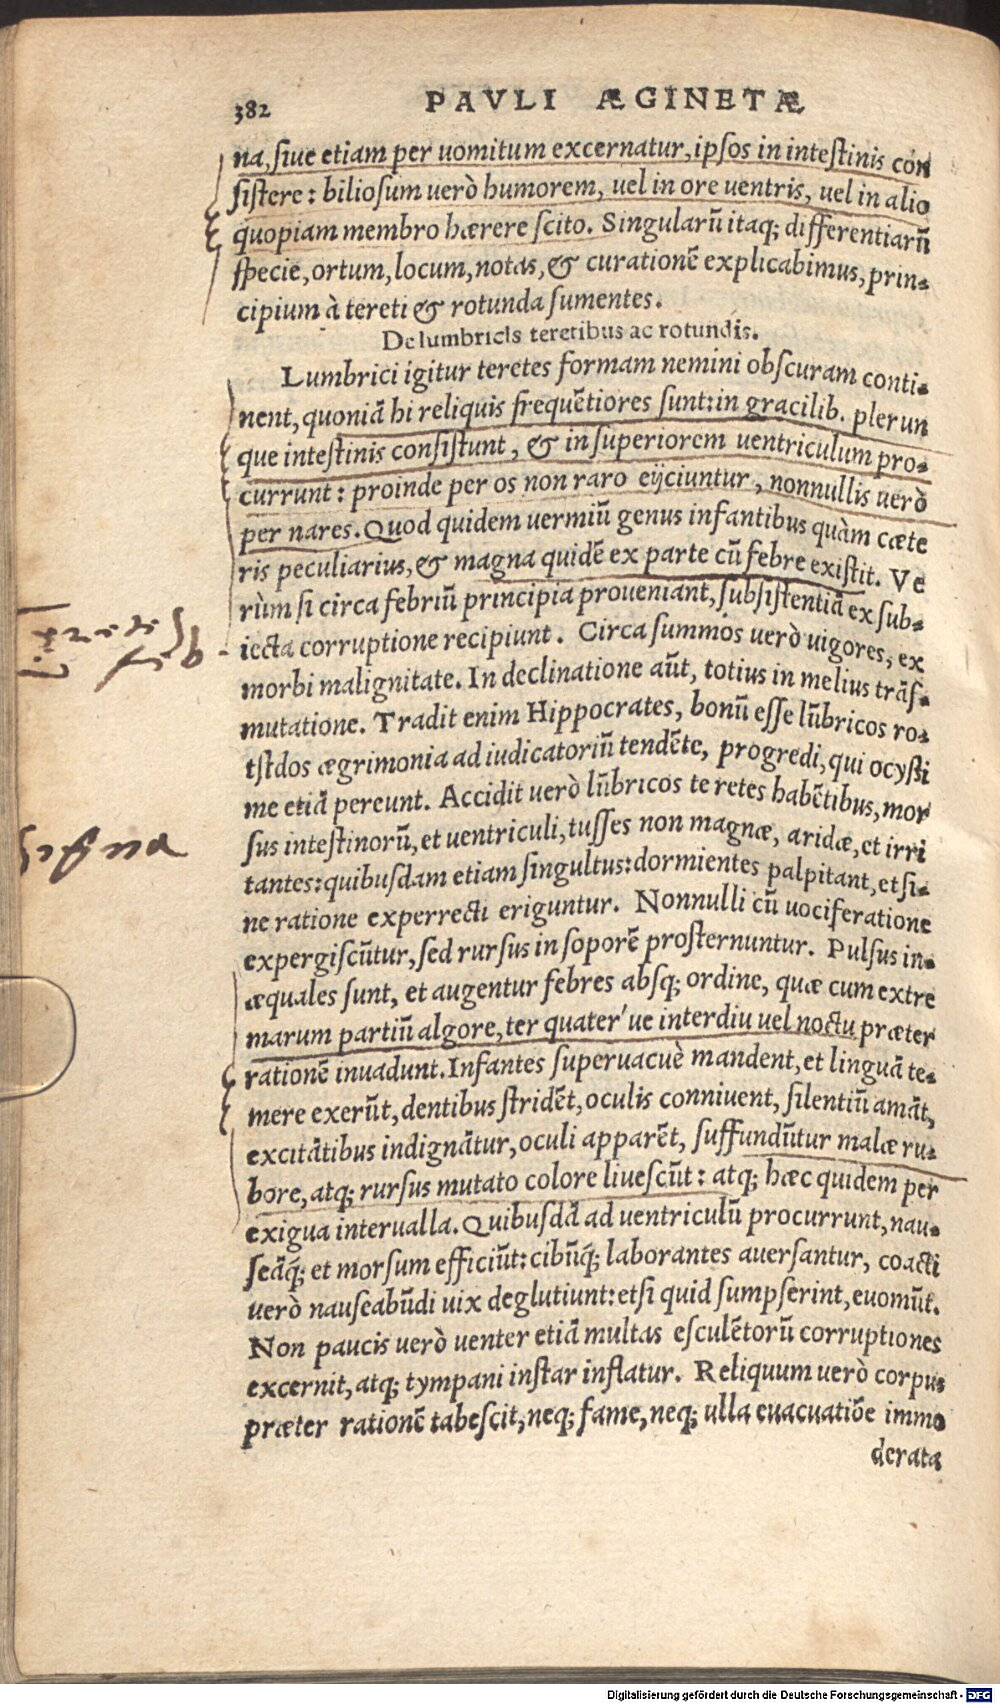 382 PAVLI ÆGINETÆ
na, siue etiam per uomitum excernatur, ipsos in intestinis con
sistere: biliosum uerò humorem, uel in ore uentris, uel in alio
quopiam membro hærere scito. Singularũ itaq; differentiarũ
specie, ortum, locum, notas, & curationẽ explicabimus, prin-
cipium à tereti & rotunda sumentes.
De lumbricis teretibus ac rotundis.
Lumbrici igitur teretes formam nemini obscuram conti-
nent, quoniã hi reliquis frequẽtiores sunt: in gracilib. plerun
que intestinis consistunt, & in superiorem uentriculum pro-
currunt: proinde per os non raro eijciuntur, nonnullis uerò
per nares. Quod quidem uermiũ genus infantibus quàm cæte
ris peculiarius, & magna quidẽ ex parte cũ febre existit. Ve
rùm si circa febriũ principia proueniant, subsistentiã ex sub-
iecta corruptione recipiunt. Circa summos uerò uigores, ex
morbi malignitate. In declinatione aũt, totius in melius trãs-
mutatione. Tradit enim Hippocrates, bonũ esse lũbricos ro-
tũdos ægrimonia ad iudicatoriũ tendẽte, progredi, qui ocyssi
me etiã pereunt. Accidit uerò lũbricos te retes habẽtibus, mor
sus intestinorũ, et uentriculi, tusses non magnæ, aridæ, et irri
tantes: quibusdam etiam singultus: dormientes palpitant, et si-
ne ratione experrecti eriguntur. Nonnulli cũ uociferatione
expergiscũtur, sed rursus in soporẽ prosternuntur. Pulsus in-
æquales sunt, et augentur febres absq; ordine, quæ cum extre
marum partiũ algore, ter quater'ue interdiu uel noctu præter
rationẽ inuadunt. Infantes superuacuè mandent, et linguã te-
mere exerũt, dentibus stridẽt, oculis conniuent, silentiũ amãt,
excitãtibus indignãtur, oculi apparẽt, suffundũtur malæ ru-
bore, atq; rursus mutato colore liuescũt: atq; hæc quidem per
exigua interualla. Quibusdã ad uentriculũ procurrunt, nau-
seãq́; et morsum efficiũt: cibũq́; laborantes auersantur, coacti
uerò nauseabũdi uix deglutiunt: etsi quid sumpserint, euomũt.
Non paucis uerò uenter etiã multas esculẽtorũ corruptiones
excernit, atq; tympani instar inflatur. Reliquum uerò corpus
præter rationẽ tabescit, neq; fame, neq; ulla euacuatiõe immo
derata
Signa
Digitalisierung gefördert durch die Deutsche Forschungsgemeinschaft - DFG